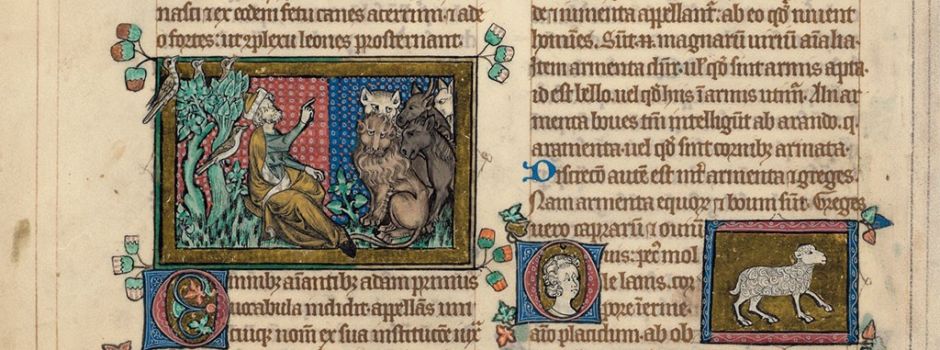 nasci: ex eodem fetu canes acerrim. i ade
o fortes: ut i plexu leones prosternant.
Omnibꝫ aiantibꝫ adam primus
uocabula indidit: appellās uni
cuiqꝫ nom̄ ex sua institucōe iux
de: iumenta appellant. ab eo qd̄ iuuent
hom̄es. Sūt. n. magnarū uiriū
Item armenta dict. ul' qd̄ sint armis apta.
id est bello. uel qd̄ ī armis utim. Alii ar
menta boues tm̄ intelligūt ab arando. q.
aramenta. uel qd̄ sint cornibꝫ armata.
Discrecō autē est int armenta ⁊ greges.
Nam armenta equoꝝ ⁊ boum sūt. Greges
uero caprarū ⁊ ouiū
Ouis: pec mol
le lanis. cor
pore inerme.
aīo placidum. ab ob